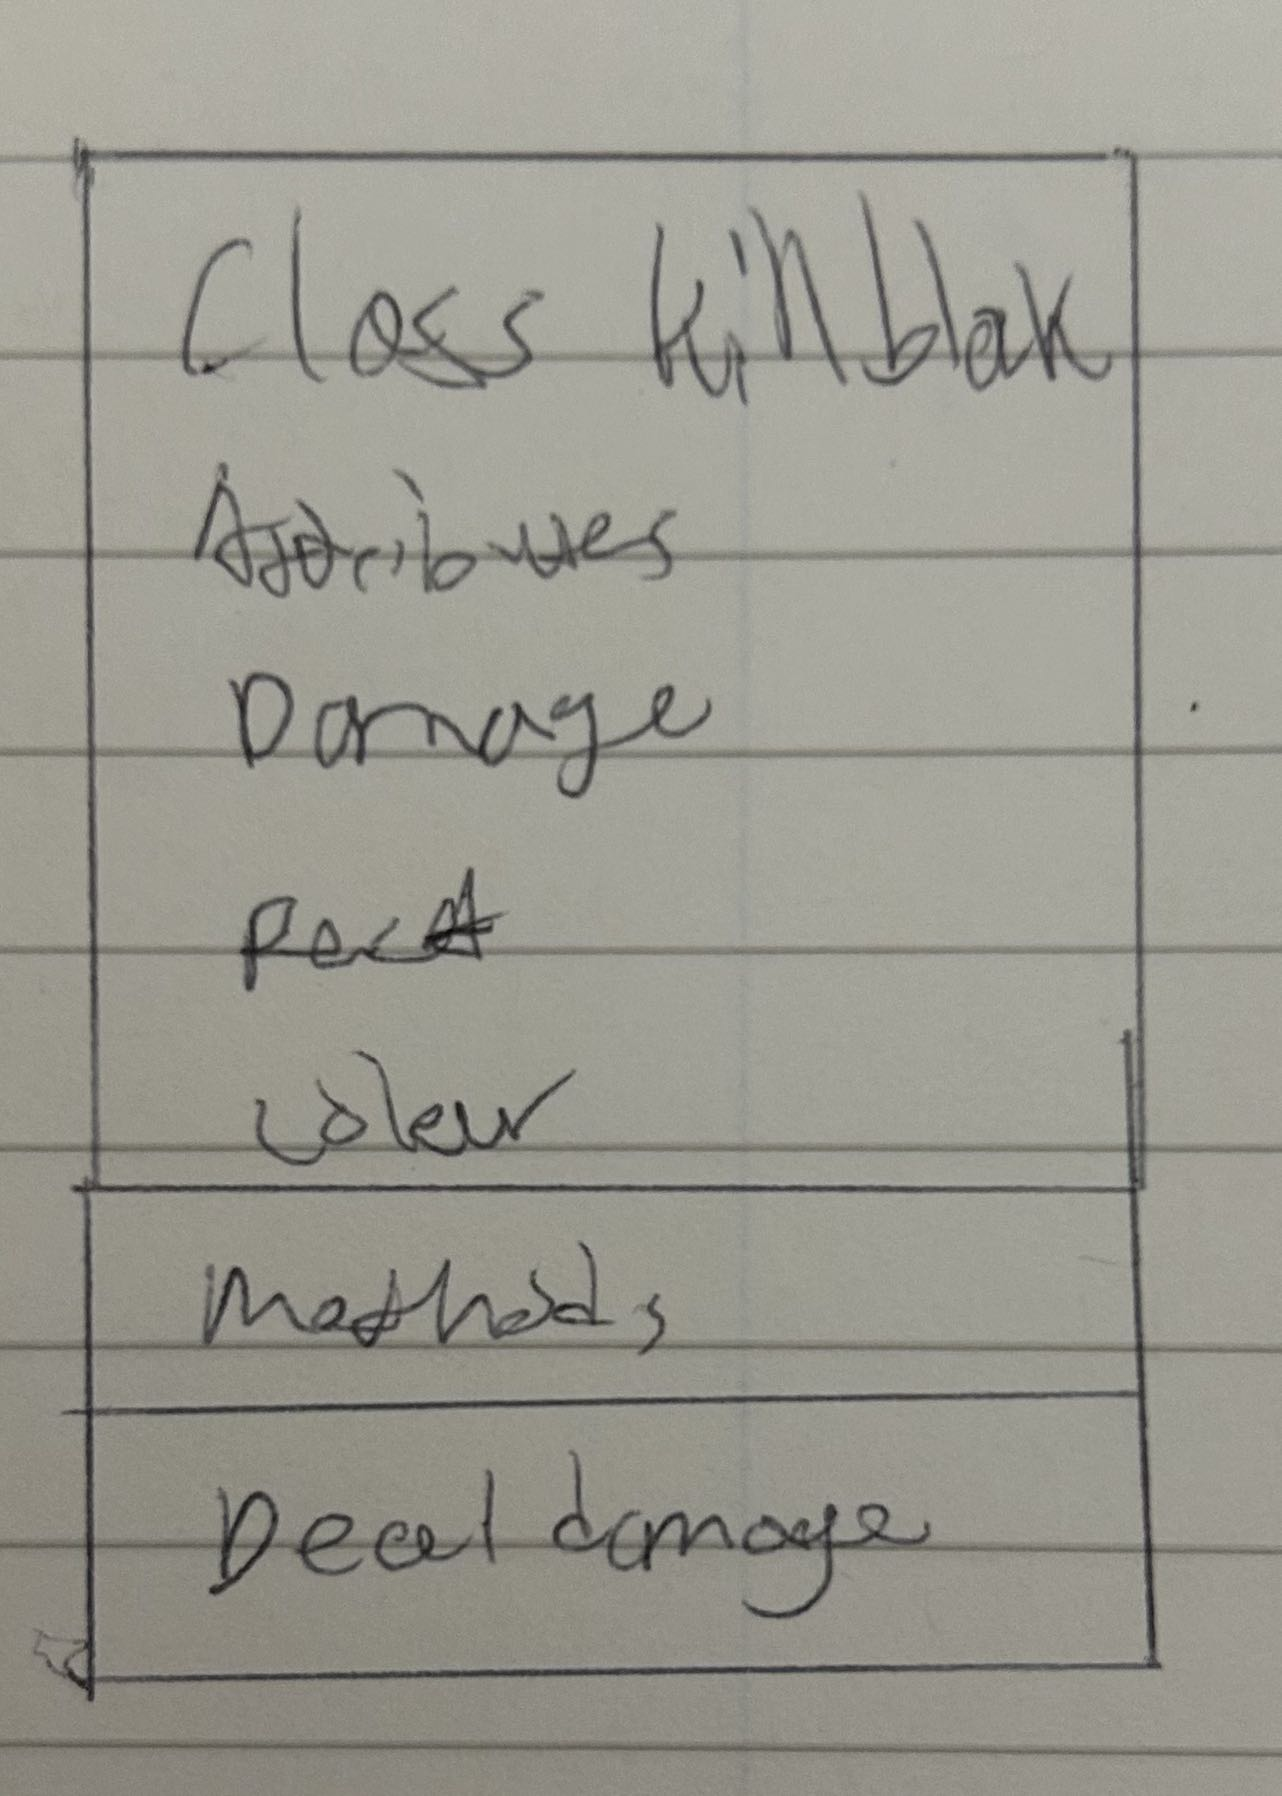 Class killblok
Attributes
Damage
Rect
Colour
Methods
Deal damage